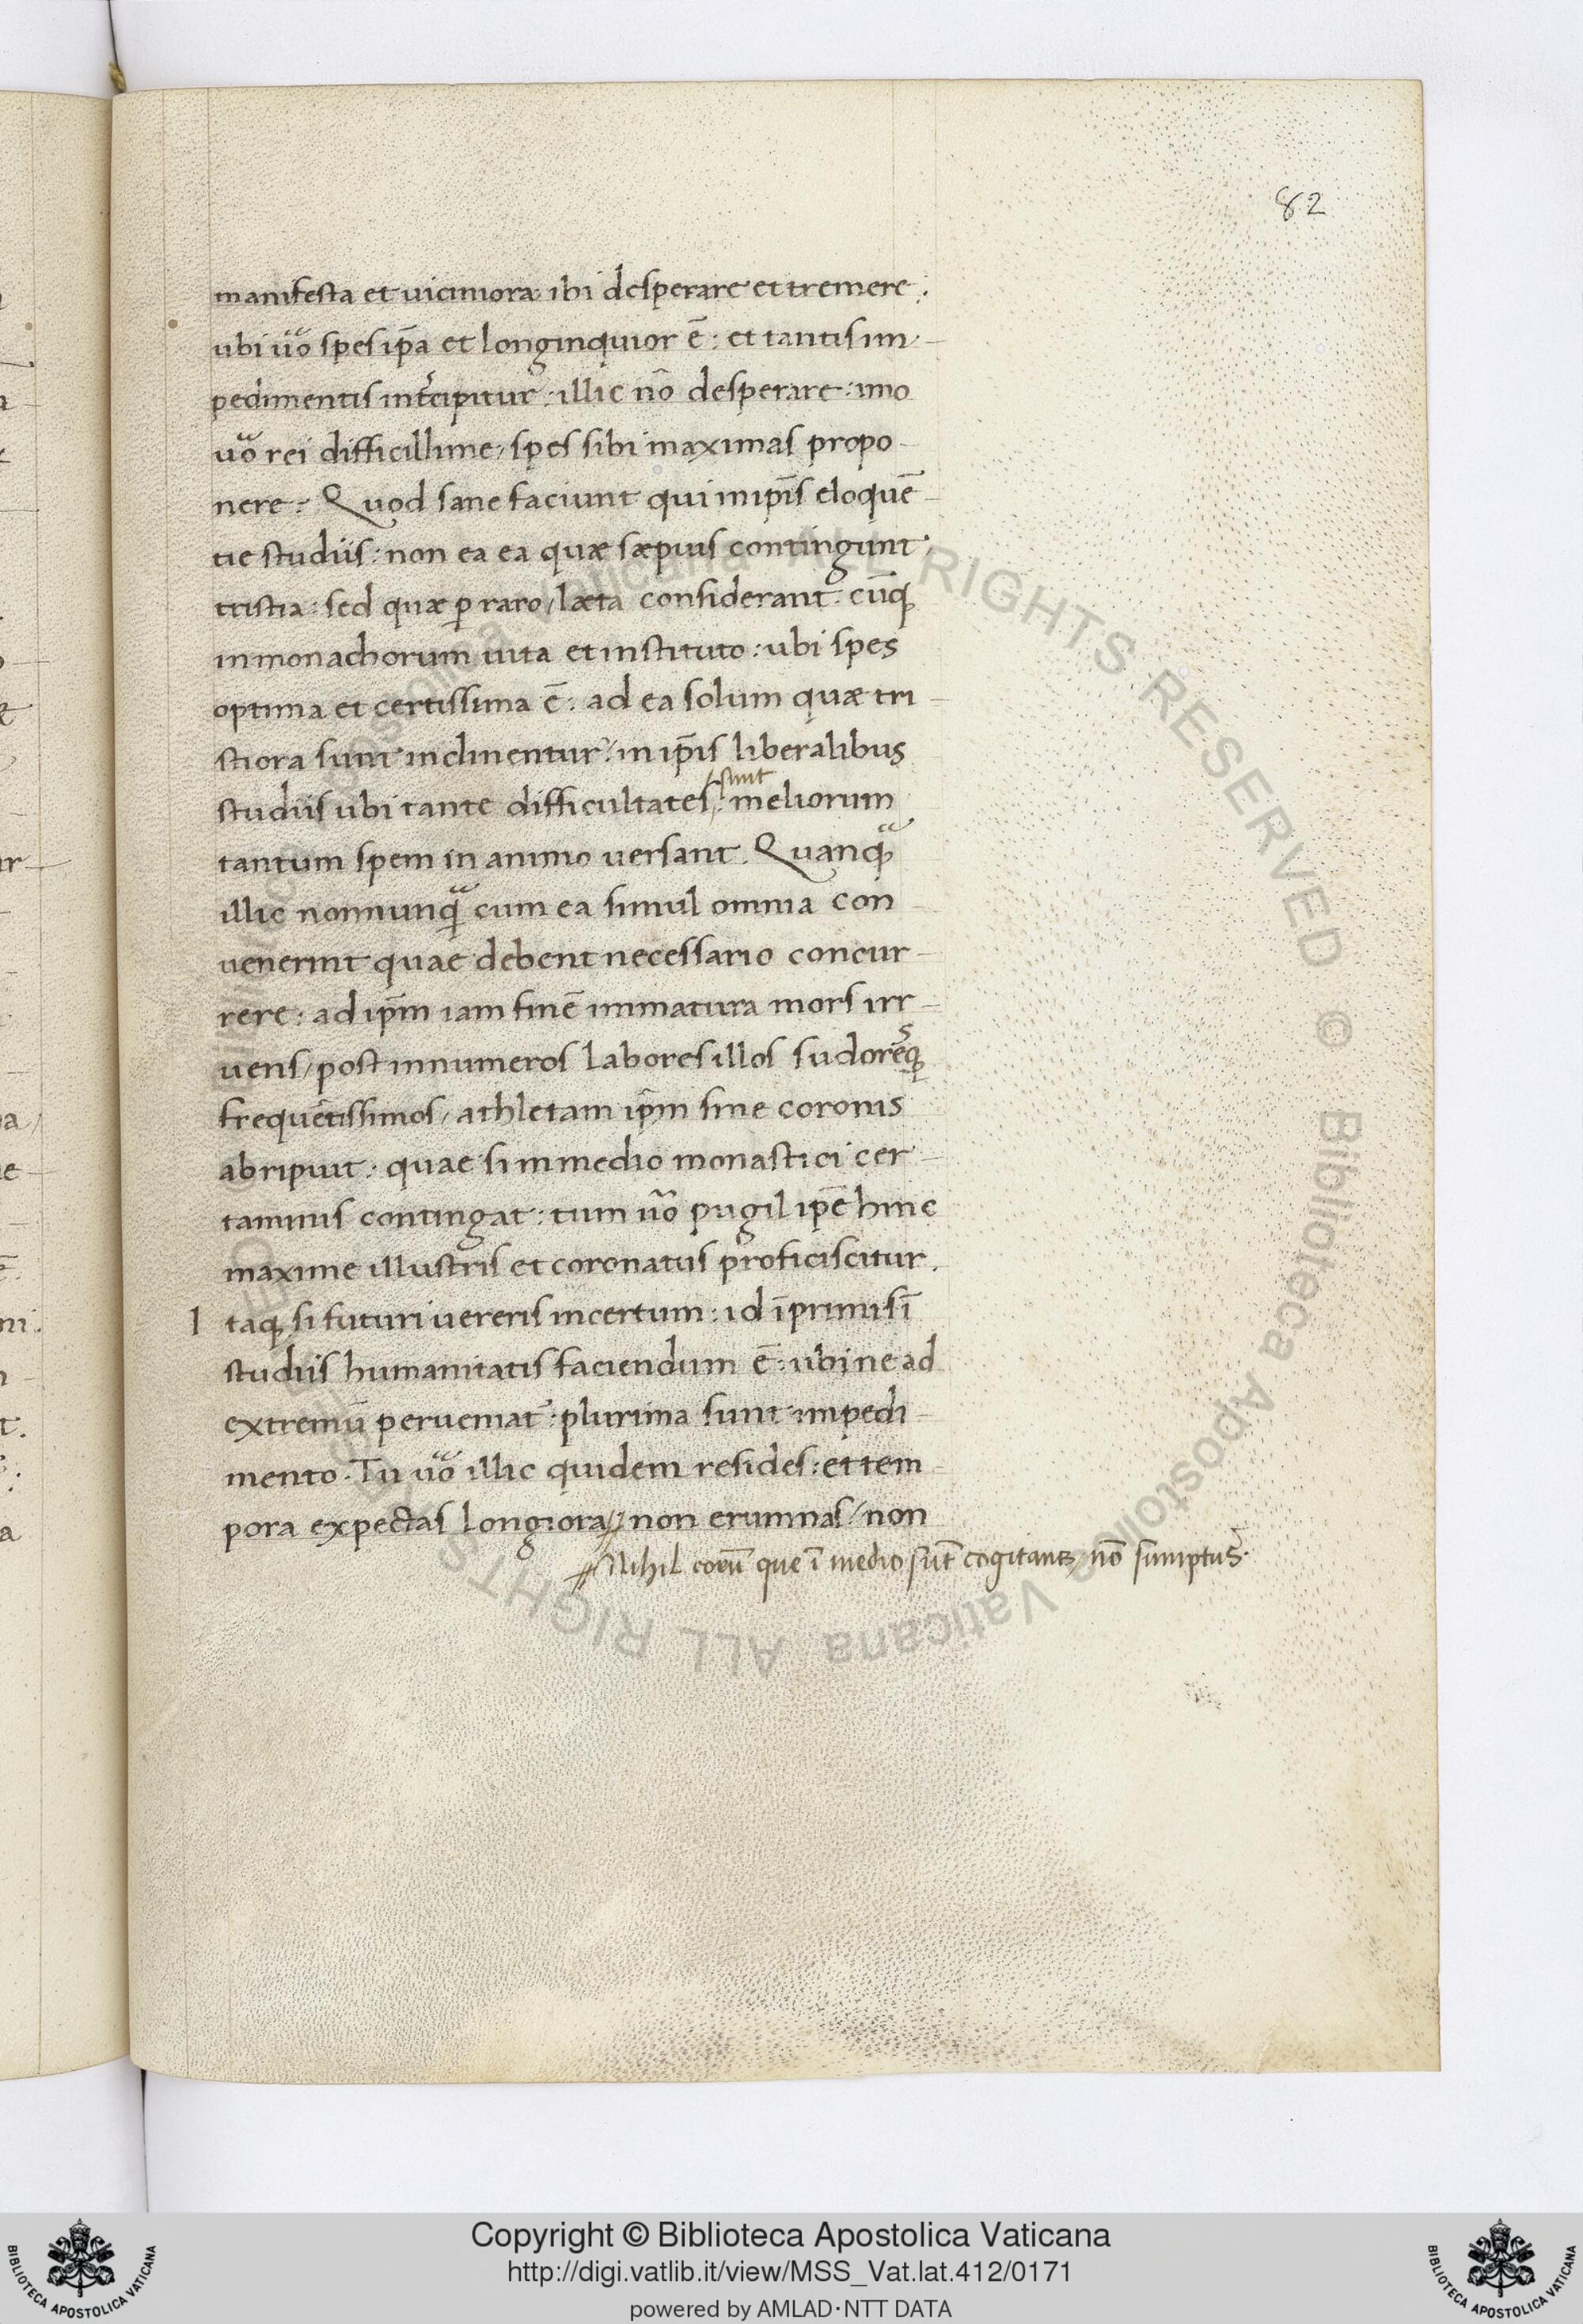 82
manifesta et uiciniora ibi desperare et tremere:
ubi u͛o spes ip̄a et longinquior ē: et tantis im-
pedimentis int͛cipitur: illic nō desperare: imo
u͛o rei difficillime, spes sibi maximas propo-
nere. Quod sane faciunt qui in ip̄is eloquē-
tie studiis: non ea ea quæ sæpius contingunt,
tristia: sed quæ ꝑ raro, læta considerant. cūqꝫ
in monachorum uita et instituto: ubi spes
optima et certissima ē: ad ea solum quæ tri-
stiora sunt inclinentur: in ip̄is liberalibus
sunt
studiis ubi tante difficultates: meliorum
tantum spem in animo uersant. Quanqᷓ
illic nonnunqᷓ cum ea simul omnia con-
uenerint quae debent necessario concur-
rere: ad ip̄m iam finē immatura mors irr-
uens, post innumeros labores illos sudoresqꝫ
frequētissimos, athletam ip̄m sine coronis
abripuit: quae si in medio monastici cer-
taminis contingat: tum u͛o pugil ip̄e hinc
maxime illustris et coronatus proficiscitur.
Itaqꝫ si futuri uereris incertum: id īprimis ī
studiis humanitatis faciendum ē: ubi ne ad
extremū perueniat͛: plurima sunt impedi-
mento. Tu u͛o illic quidem resides: et tem-
pora expectas longiora, non erumnas, non
Nihil eorū que ī medio sūt cogitans, nō sumptus.
Copyright © Biblioteca Apostolica Vaticana
http://digi.vatlib.it/view/MSS_Vat.lat.412/0171
powered by AMLAD·NTT DATA
BIBLIOTECA APOSTOLICA VATICANA
BIBLIOTECA APOSTOLICA VATICANA